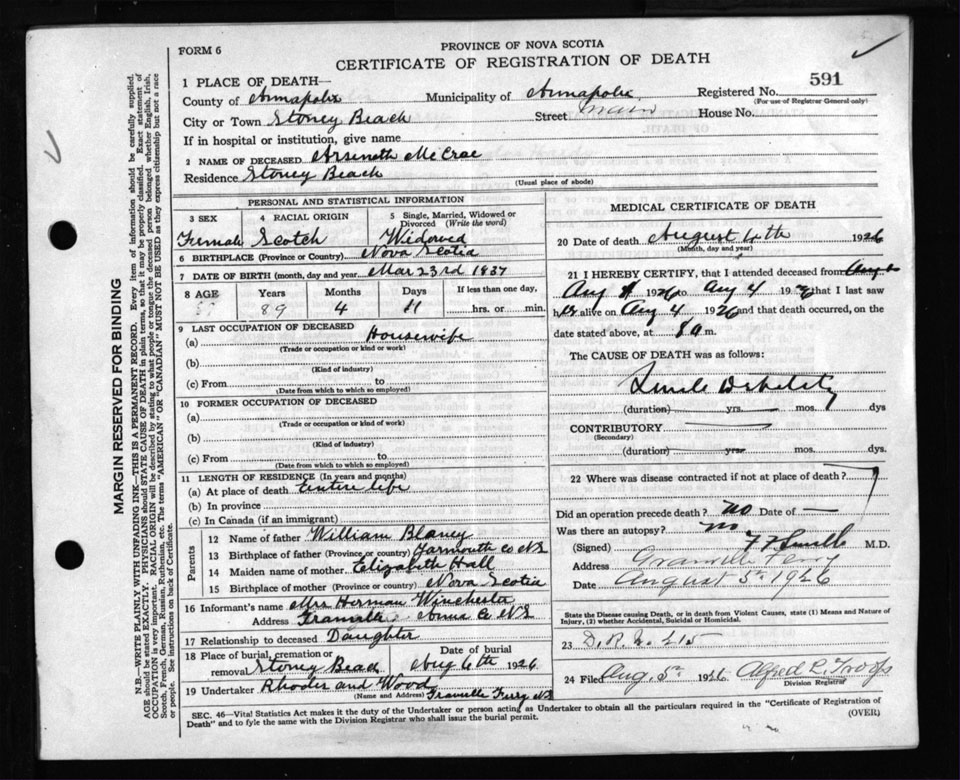 FORM 6
PROVINCE OF NOVA SCOTIA
CERTIFICATE OF REGISTRATION OF DEATH
591
1 PLACE OF DEATH—
County of Annapolis Municipality of Annapolis Registered No.
(For use of Registrar General only)
City or Town Stoney Beach Street main House No.
If in hospital or institution, give name
2 NAME OF DECEASED Arseneth McCrae
Residence Stoney Beach
(Usual place of abode)
PERSONAL AND STATISTICAL INFORMATION
3 SEX 4 RACIAL ORIGIN 5 Single, Married, Widowed or Divorced (Write the word)
Female Scotch Widowed
6 BIRTHPLACE (Province or Country) Nova Scotia
7 DATE OF BIRTH (month, day and year) Mar 23rd 1837
8 AGE Years Months Days If less than one day,
89 4 11 hrs. or min.
9 LAST OCCUPATION OF DECEASED
(a) Housewife
(Trade or occupation or kind or work)
(b)
(Kind of industry)
(c) From to
(Date from which to which so employed)
10 FORMER OCCUPATION OF DECEASED
(a)
(Trade or occupation or kind or work)
(b)
(Kind of industry)
(c) From to
(Date from which to which so employed)
11 LENGTH OF RESIDENCE (In years and months)
(a) At place of death Entire life
(b) In province
(c) In Canada (if an immigrant)
Parents
12 Name of father William Blaney
13 Birthplace of father (Province or country) Yarmouth Co NS
14 Maiden name of mother Elizabeth Hall
15 Birthplace of mother (Province or country) Nova Scotia
16 Informant's name Mrs Herman Winchester
Address Granville Anna Co NS
17 Relationship to deceased Daughter
18 Place of burial, cremation or removal Stoney Beach Date of burial Aug 6th 1926
19 Undertaker Rhodes and Wood
(Name and Address) Granville Ferry NS
MEDICAL CERTIFICATE OF DEATH
20 Date of death August 4th 1926
(Month, day and year)
21 I HEREBY CERTIFY, that I attended deceased from
Aug 1926 to Aug 4 1926 that I last saw
her alive on Aug 4 1926 and that death occurred, on
date stated above, at 8 a m.
The CAUSE OF DEATH was as follows:
Senile Debility
(duration) yrs. mos. dys
CONTRIBUTORY
(Secondary)
(duration) yrs. mos. dys
22 Where was disease contracted if not at place of death?
Did an operation precede death? no Date of —
Was there an autopsy? no
(Signed) M.D.
Address Granville Ferry
Date August 5th 1926
State the Disease causing Death, or in death from Violent Causes, state (1) Means and Nature of Injury, (2) whether Accidental, Suicidal or Homicidal.
23
24 Filed Aug. 5th 1926 Alfred
Division Registrar
SEC. 46—Vital Statistics Act makes it the duty of the Undertaker or person acting as Undertaker to obtain all the particulars required in the "Certificate of Registration of
Death" and to fyle the same with the Division Registrar who shall issue the burial permit.
(OVER)
MARGIN RESERVED FOR BINDING
N.B.—WRITE PLAINLY WITH UNFADING INK—THIS IS A PERMANENT RECORD. Every item of information should be carefully supplied.
AGE should be stated EXACTLY. PHYSICIANS should STATE CAUSE OF DEATH in plain terms, so that it may be properly classified. Exact statement of
OCCUPATION is very important. RACIAL ORIGIN will be described by stating to what people or tongue the deceased person belonged whether English, Irish,
Scotch, French, German, Russian, Ruthenian, etc. The terms "AMERICAN" OR "CANADIAN" MUST NOT BE USED as they express citizenship but not a race
or people. See instructions on back of Certificate.